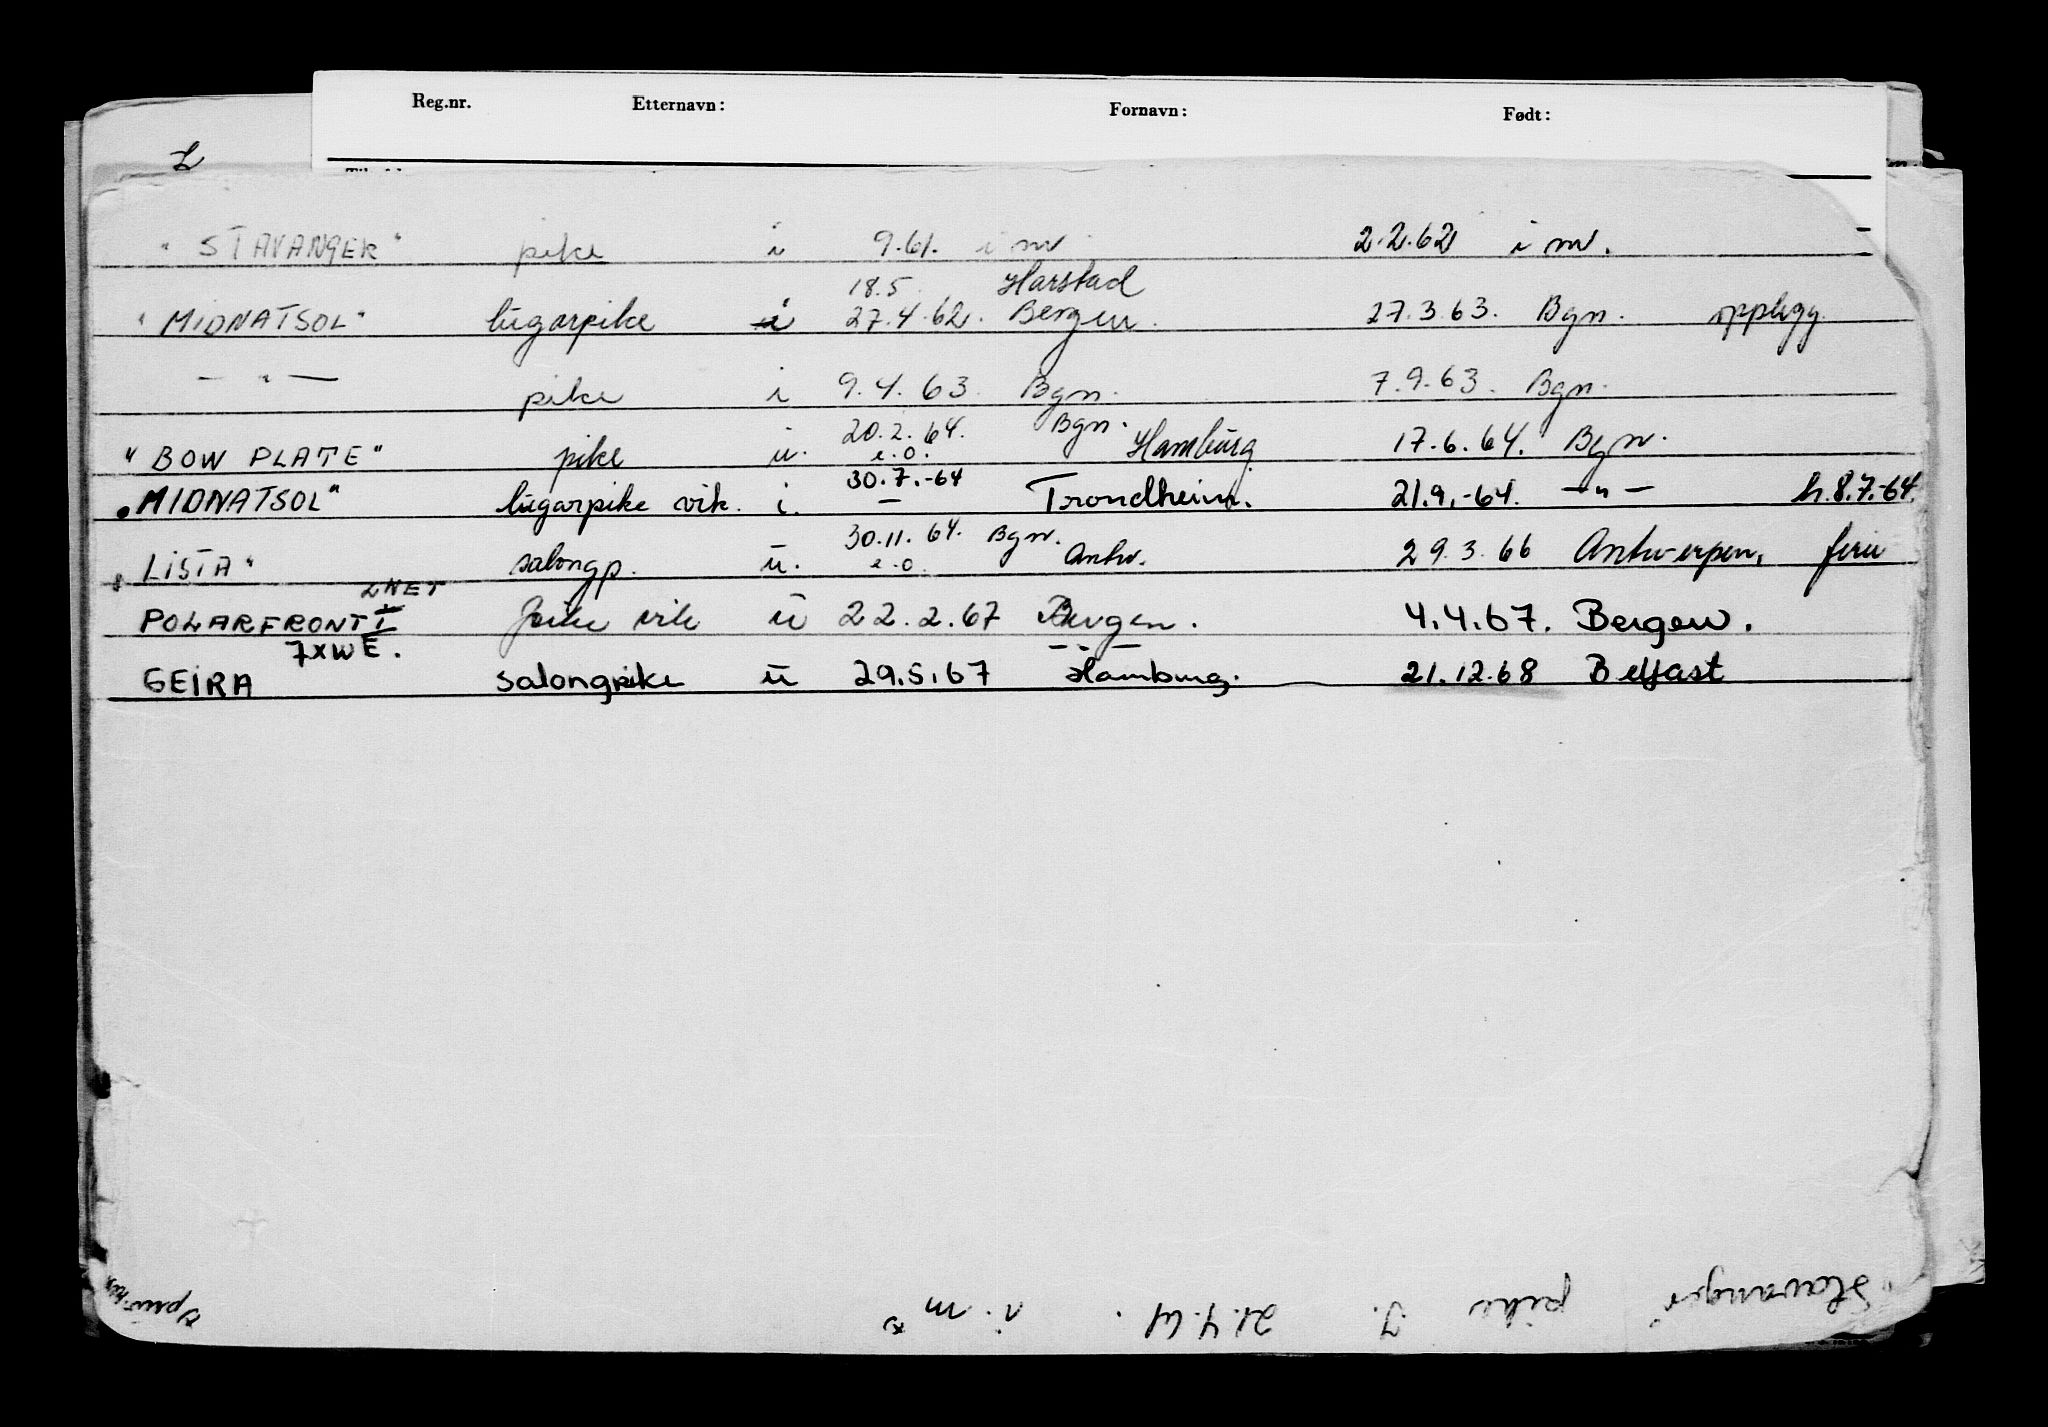 Reg.nr. Etternavn: Fornavn: Født:
"STAVANGER" pike i 9.61. i m 2.2.62 i m.
18.5. Harstad
"MIDNATSOL" lugarpike i 27.4.62. Bergen. 27.3.63. Bgn. opplegg.
— " — pike i 9.4.63 Bgn. 7.9.63. Bgn.
20.2.64. Bgn.
"BOW PLATE" pike u. e.o. Hamburg 17.6.64. Bgn.
30.7.-64
"MIDNATSOL" lugarpike vik. i. — Trondheim. 21.9.-64. —"— h.8.7.-64.
30.11.64. Bgn.
"LISTA" salongp. u. e.o. Antw. 29.3.66 Antwerpen, ferie
LNET
POLARFRONT I pike vik u 22.2.67 Bergen. 4.4.67. Bergen.
7XWE.
GEIRA salongpike u 29.5.67 Hamburg. 21.12.68 Belfast
"Stavanger" pike I. 21.4.61. i.m